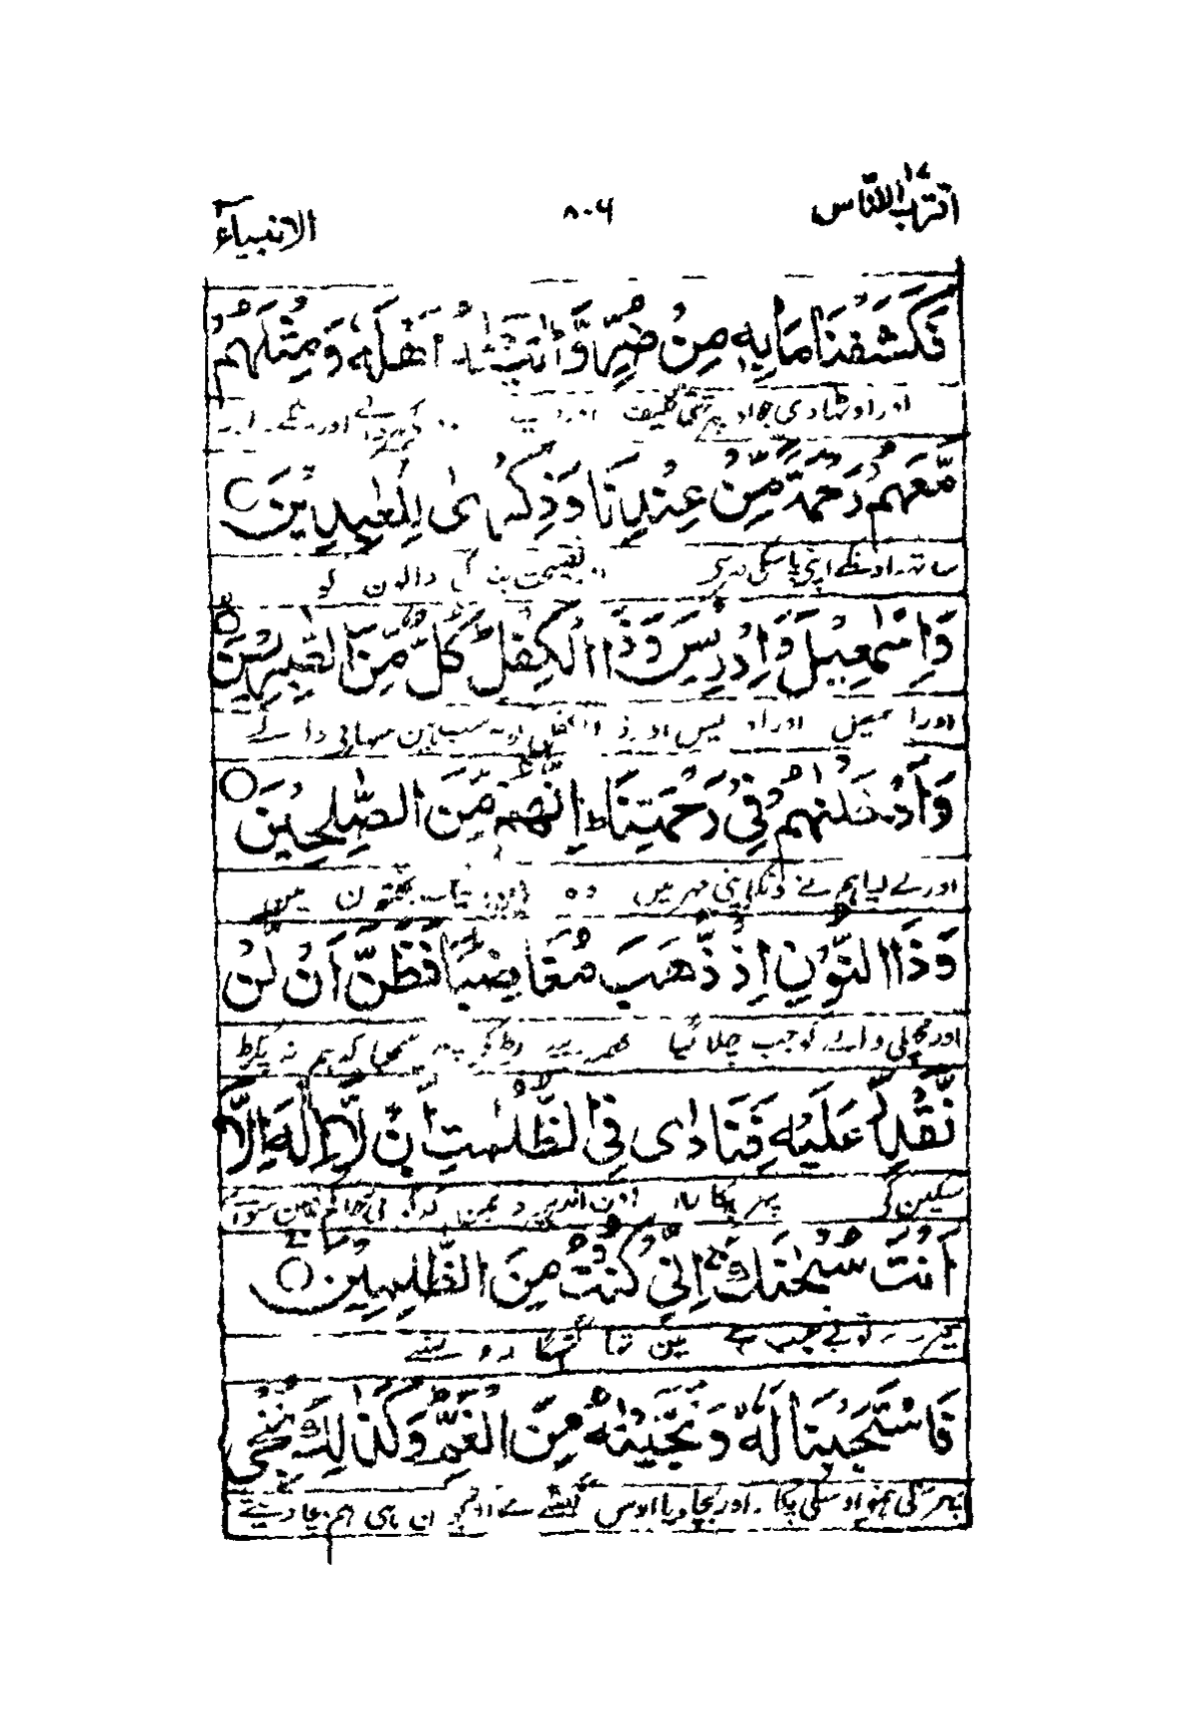 اقترب للناس ۱۷
۸۰۶
الانبیاء
فَكَشَفْنَا مَا بِهٖ مِنْ ضُرٍّ وَّاٰتَيْنٰهُ اَهْلَهٗ وَمِثْلَهُمْ
اور اوٹھا دی جو اوسپر تھی تکلیف اور
مَّعَهُمْ رَحْمَةً مِّنْ عِنْدِنَا وَذِكْرٰى لِلْعٰبِدِيْنَ
ساتھ اونکے اپنی پاس کی مہر نصیحت والون کو
وَاِسْمٰعِيْلَ وَاِدْرِيْسَ وَذَا الْكِفْلِ كُلٌّ مِّنَ الصّٰبِرِيْنَ
اور اور ادریس اور ذا الکفل سب ہین سہارنی والے
وَاَدْخَلْنٰهُمْ فِيْ رَحْمَتِنَا ط اِنَّهُمْ مِّنَ الصّٰلِحِيْنَ
اور لے لیا ہم نے اونکو اپنی مہر میں وہ ہین نیک بختون میں
وَذَا النُّوْنِ اِذْ ذَّهَبَ مُغَاضِبًا فَظَنَّ اَنْ لَّنْ
اور مچھلی والے کو جب چلا گیا لڑ کر پھر سمجھا کہ ہم نہ پکڑ
نَّقْدِرَ عَلَيْهِ فَنَادٰى فِى الظُّلُمٰتِ اَنْ لَّآ اِلٰهَ اِلَّآ
سکین گے پھر پکارا اون اندھیرون مین کہ کوئی حاکم نہین سوا
اَنْتَ سُبْحٰنَكَ اِنِّيْ كُنْتُ مِنَ الظّٰلِمِيْنَ
تیرے تو بے عیب ہے مین تھا گنہگارون سے
فَاسْتَجَبْنَا لَهٗ وَنَجَّيْنٰهُ مِنَ الْغَمِّ وَكَذٰلِكَ نُنْجِى
پھر سن لی ہمنے اوسکی پکار اور بچا دیا اوس گھٹنے سے اور یون ہی ہم بچا دیتے